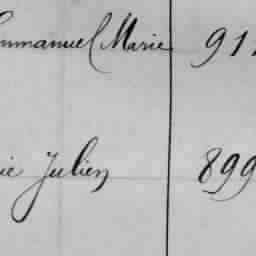 Emmanuel Marie 911
ie Julien 899